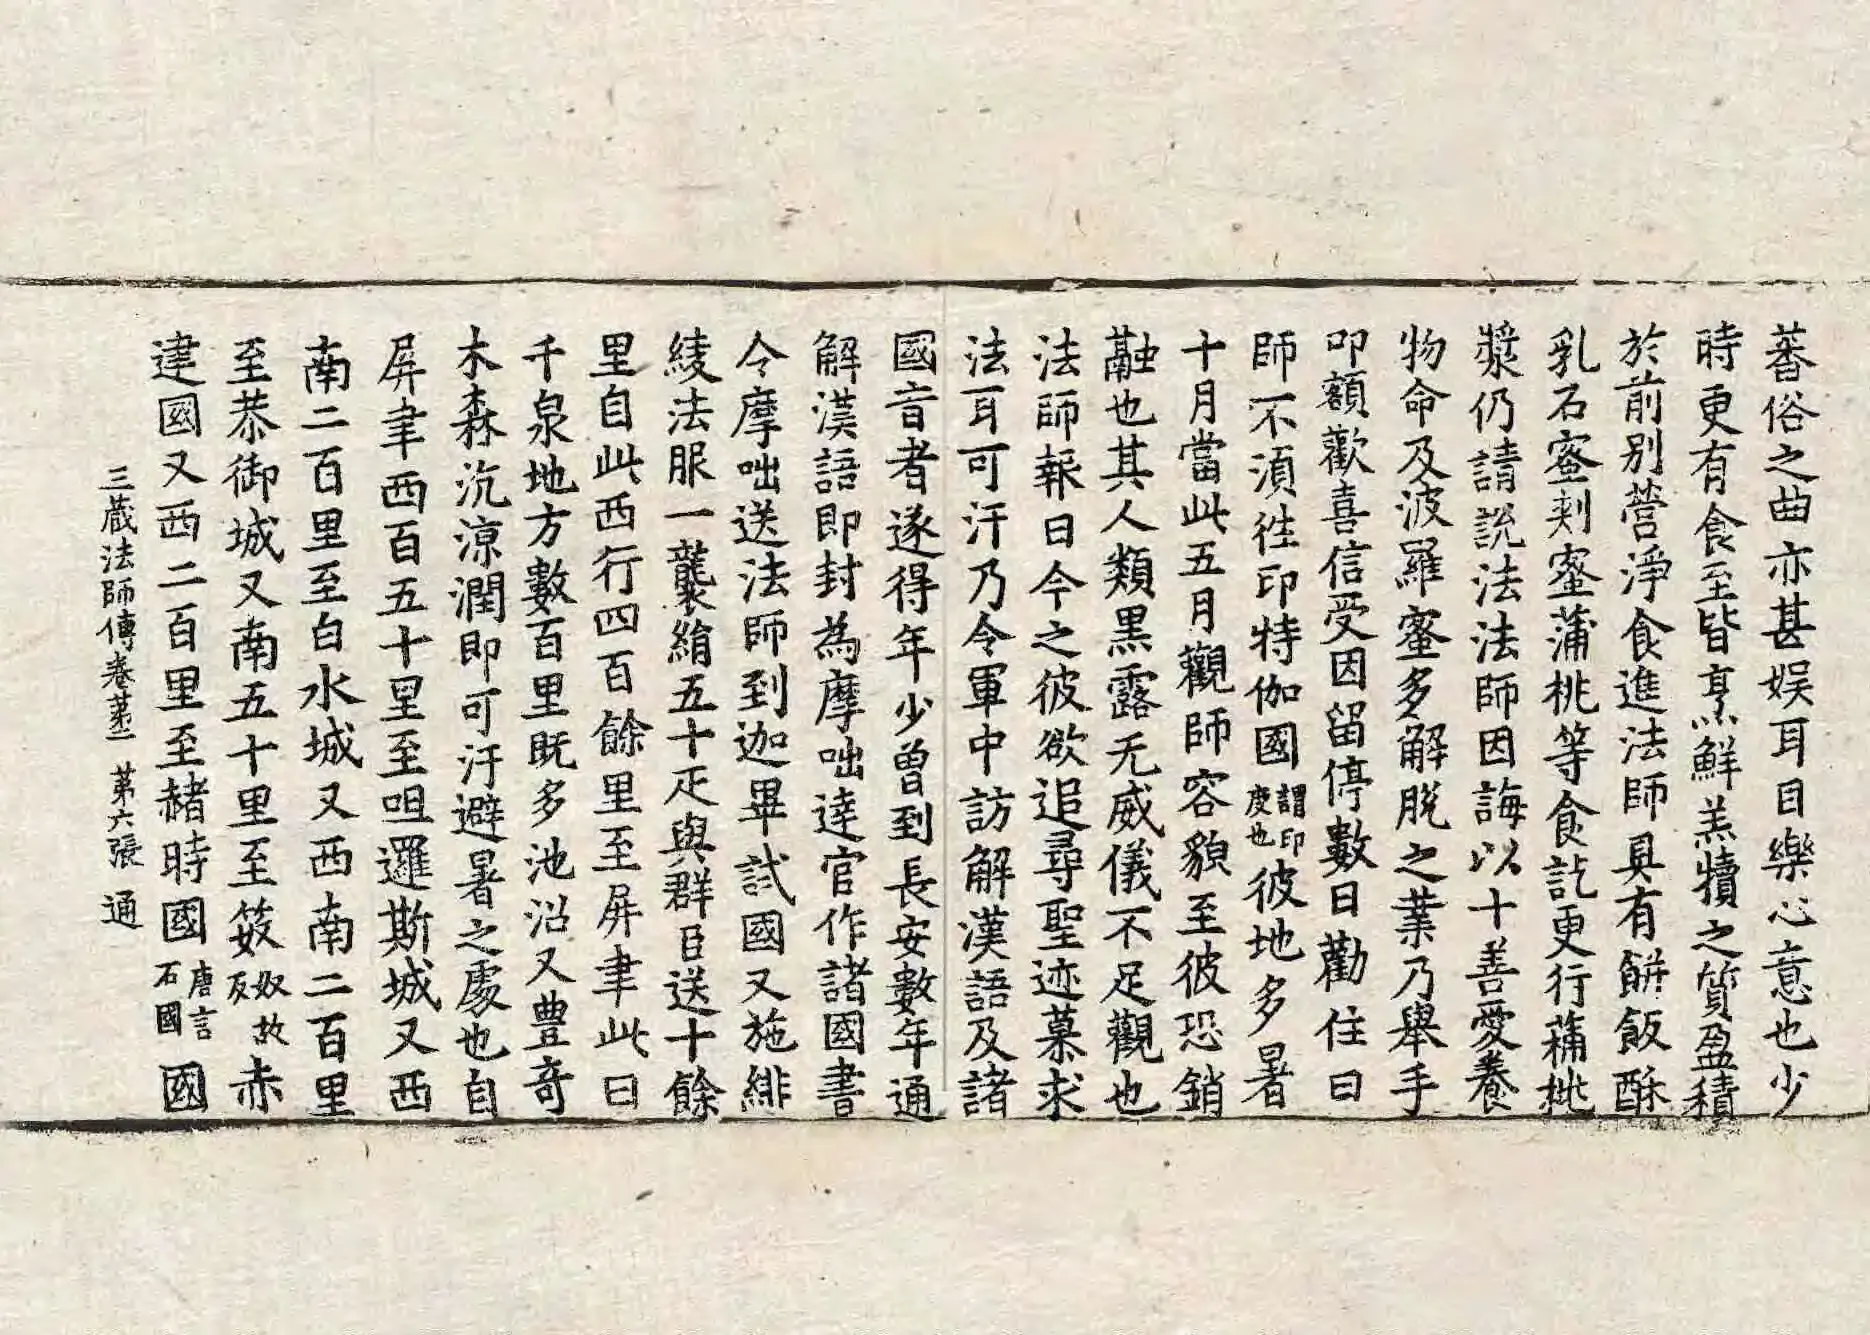 蕃俗之曲亦甚娱耳目樂心意也少
時更有食至皆烹鮮羔犢之質盈積
於前別营淨食進法師具有餅飯酥
乳石蜜刾蜜蒲桃等食訖更行蒱桃
漿仍請說法法師因誨以十善愛養
物命及波羅蜜多解脫之業乃舉手
叩額歡喜信受因留停數日勸住曰
師不湏往印特伽國謂印度也彼地多暑
十月當此五月觀師容貌至彼恐銷
融也其人類黑露无威儀不足觀也
法師報曰今之彼欲追尋聖迹慕求
法耳可汗乃令軍中訪解漢語及諸
國音者遂得年少曾到長安數年通
解漢語即封為摩咄達官作諸國書
令摩咄送法師到迦畢試國又施緋
綾法服一襲絹五十疋與群臣送十餘
里自此西行四百餘里至屏聿此曰
千泉地方數百里既多池沼又豊奇
木森沉涼潤即可汗避暑之處也自
屏聿西百五十里至呾邏斯城又西
南二百里至白水城又西南二百里
至恭御城又南五十里至笯奴故反赤
建國又西二百里至赭時國唐言石國國
三蔵法師傳卷苐二 苐六張 通